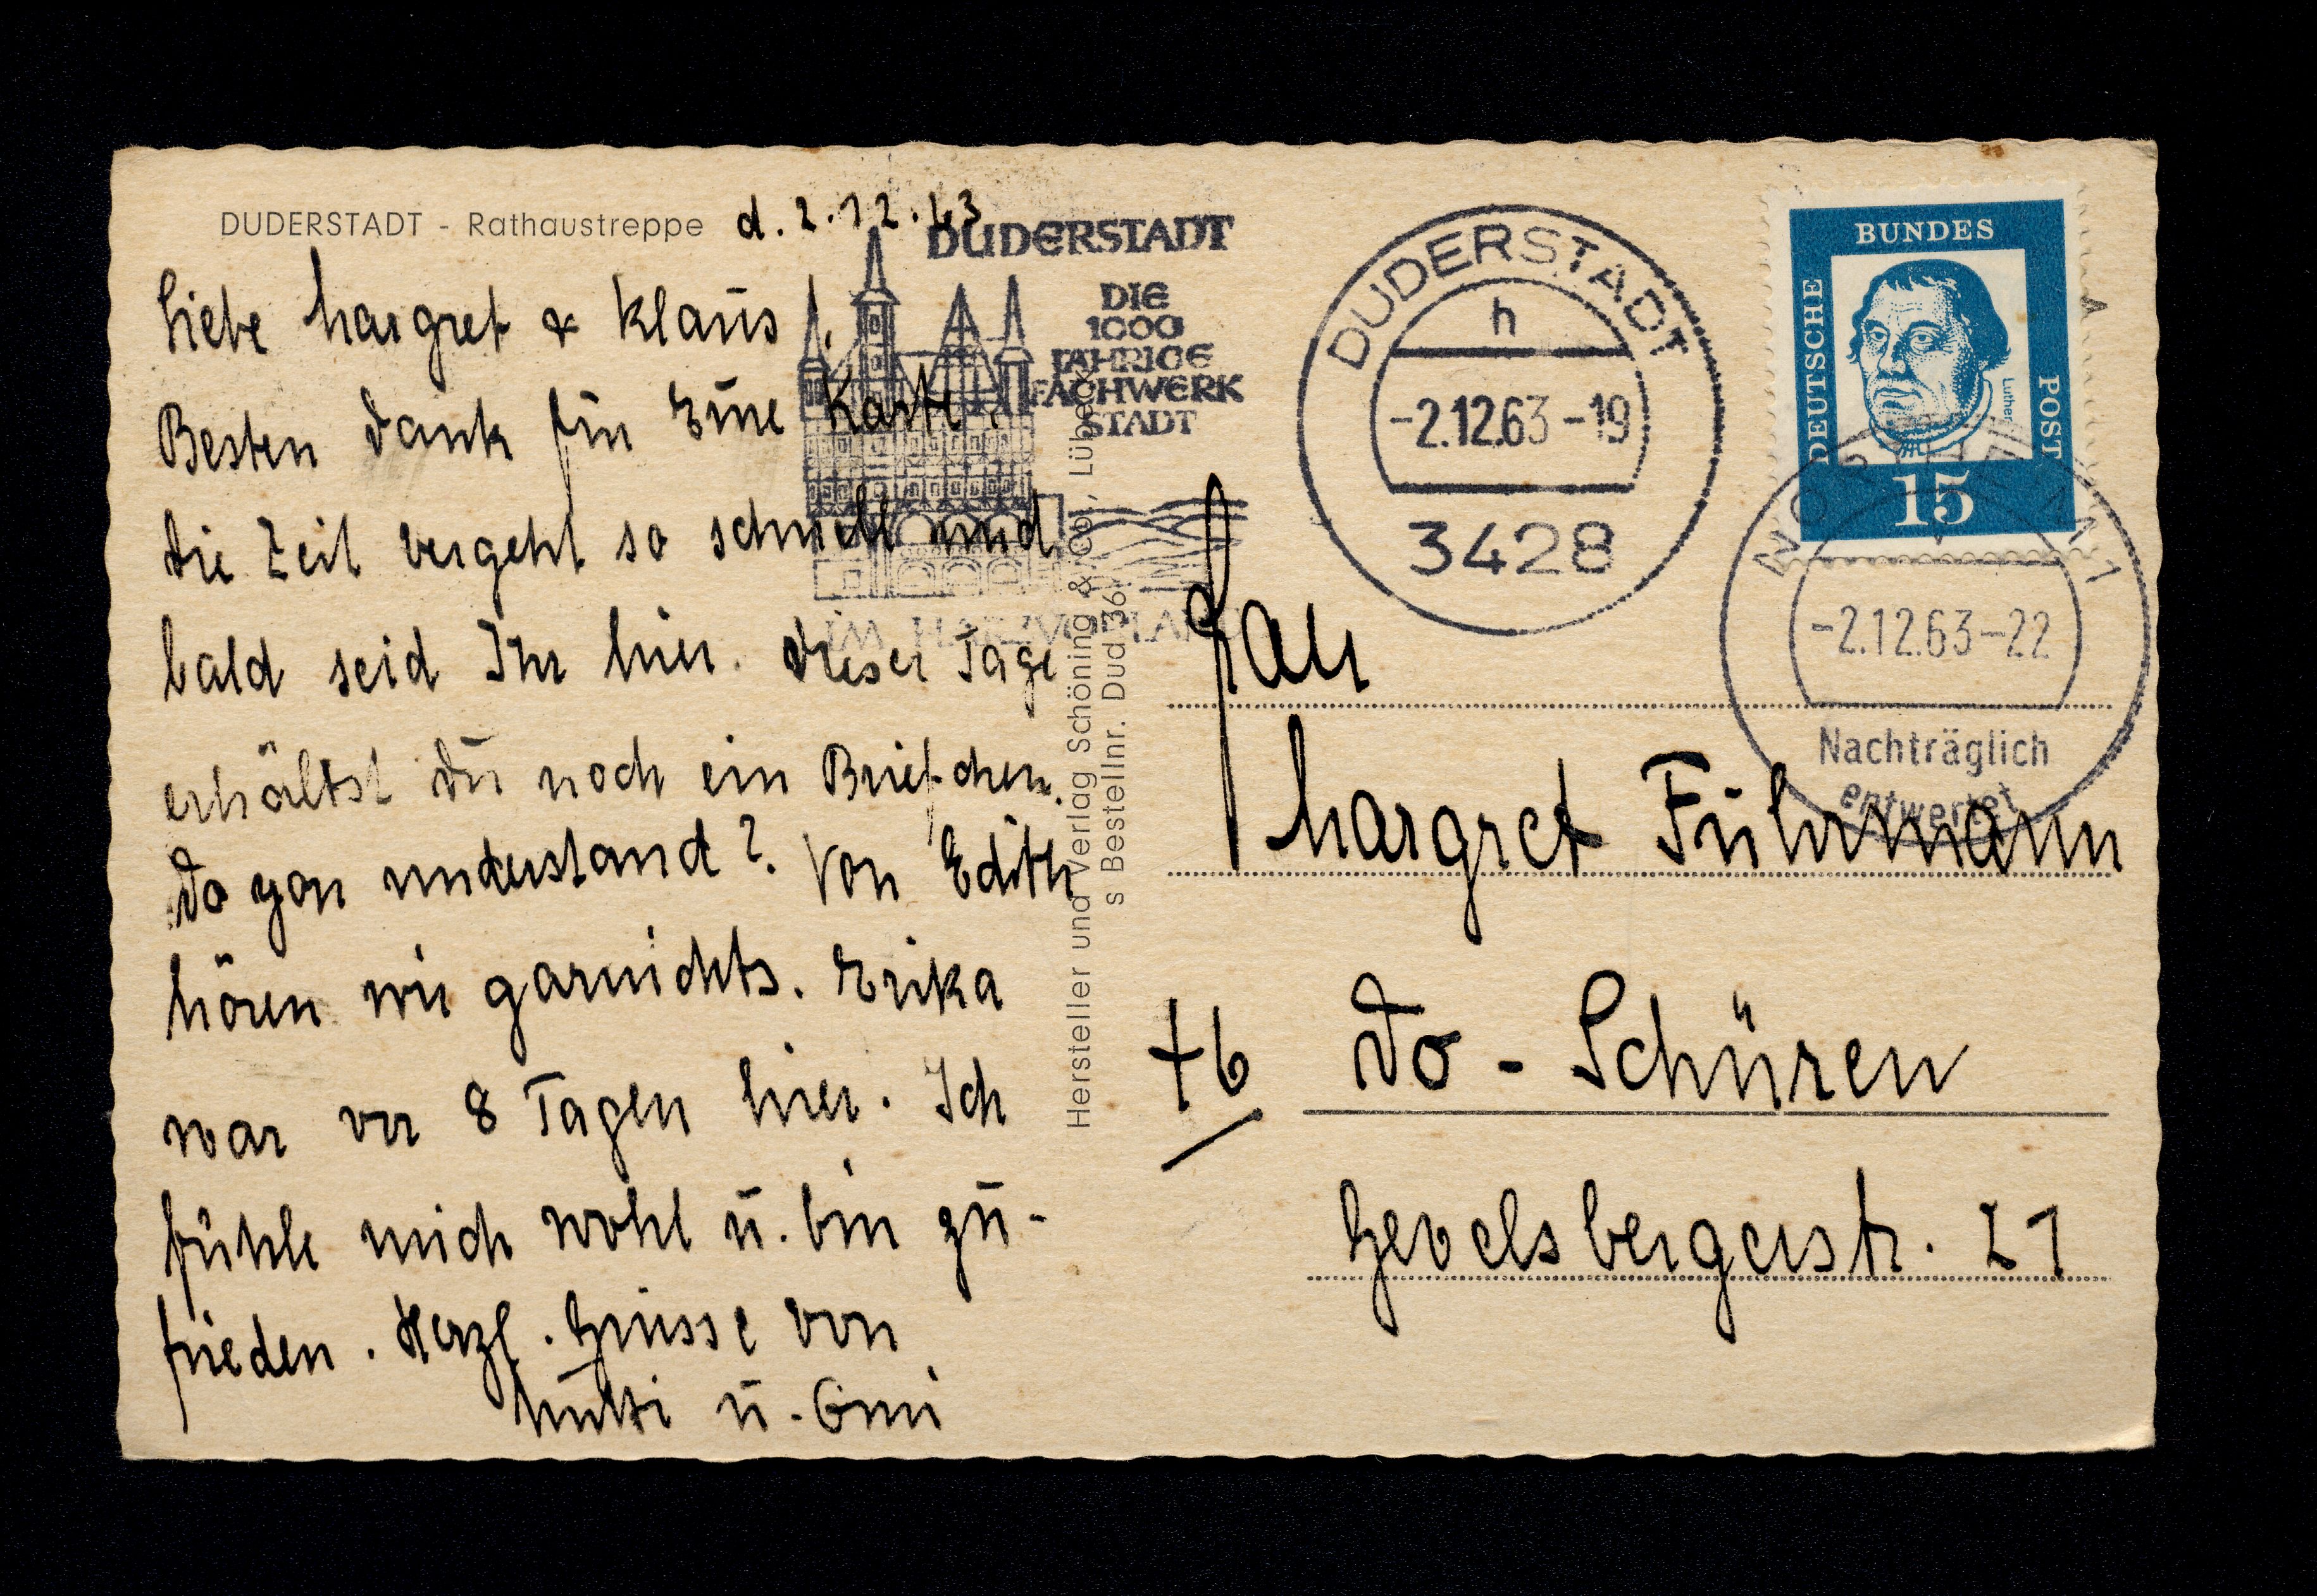 DUDERSTADT - Rathaustreppe
d. 2.12.63
Liebe Margret & Klaus!
Besten Dank für Eure Karte.
Die Zeit vergeht so schnell und
bald seid Ihr hier. Dieser Tage
erhältst Du noch ein Briefchen.
Do you understand? Von Edith
hören wir garnichts. Erika
war vor 8 Tagen hier. Ich
fühle mich wohl u. bin zu-
frieden. Herzl. Grüsse von
Mutti u. Omi
DUDERSTADT
DIE
1000
JÄHRIGE
FACHWERK
STADT
IM HARZVORLAND
Hersteller und Verlag Schöning & Co., Lübeck
s Bestellnr. Dud 36
DUDERSTADT
h
-2.12.63-19
3428
BUNDES
DEUTSCHE
POST
Luther
15
-2.12.63-22
Nachträglich
entwertet
Frau
Margret Führmann
46 Do-Schüren
Gevelsbergerstr. 21